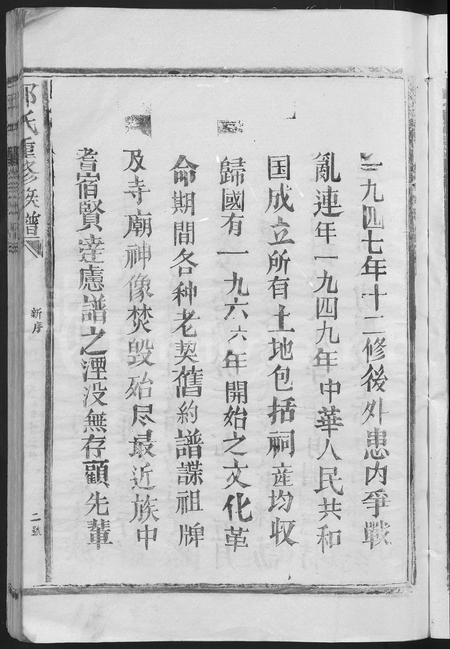 一九四七年十二修後外患内爭戰
亂連年一九四九年中華人民共和
国成立所有土地包括祠産均收
歸國有一九六六年開始之文化革
命期間各种老契舊約譜諜祖牌
及寺廟神像焚毁殆尽最近族中
耆宿賢達慮譜之湮没無存顧先輩
氏重修族譜
新序
二